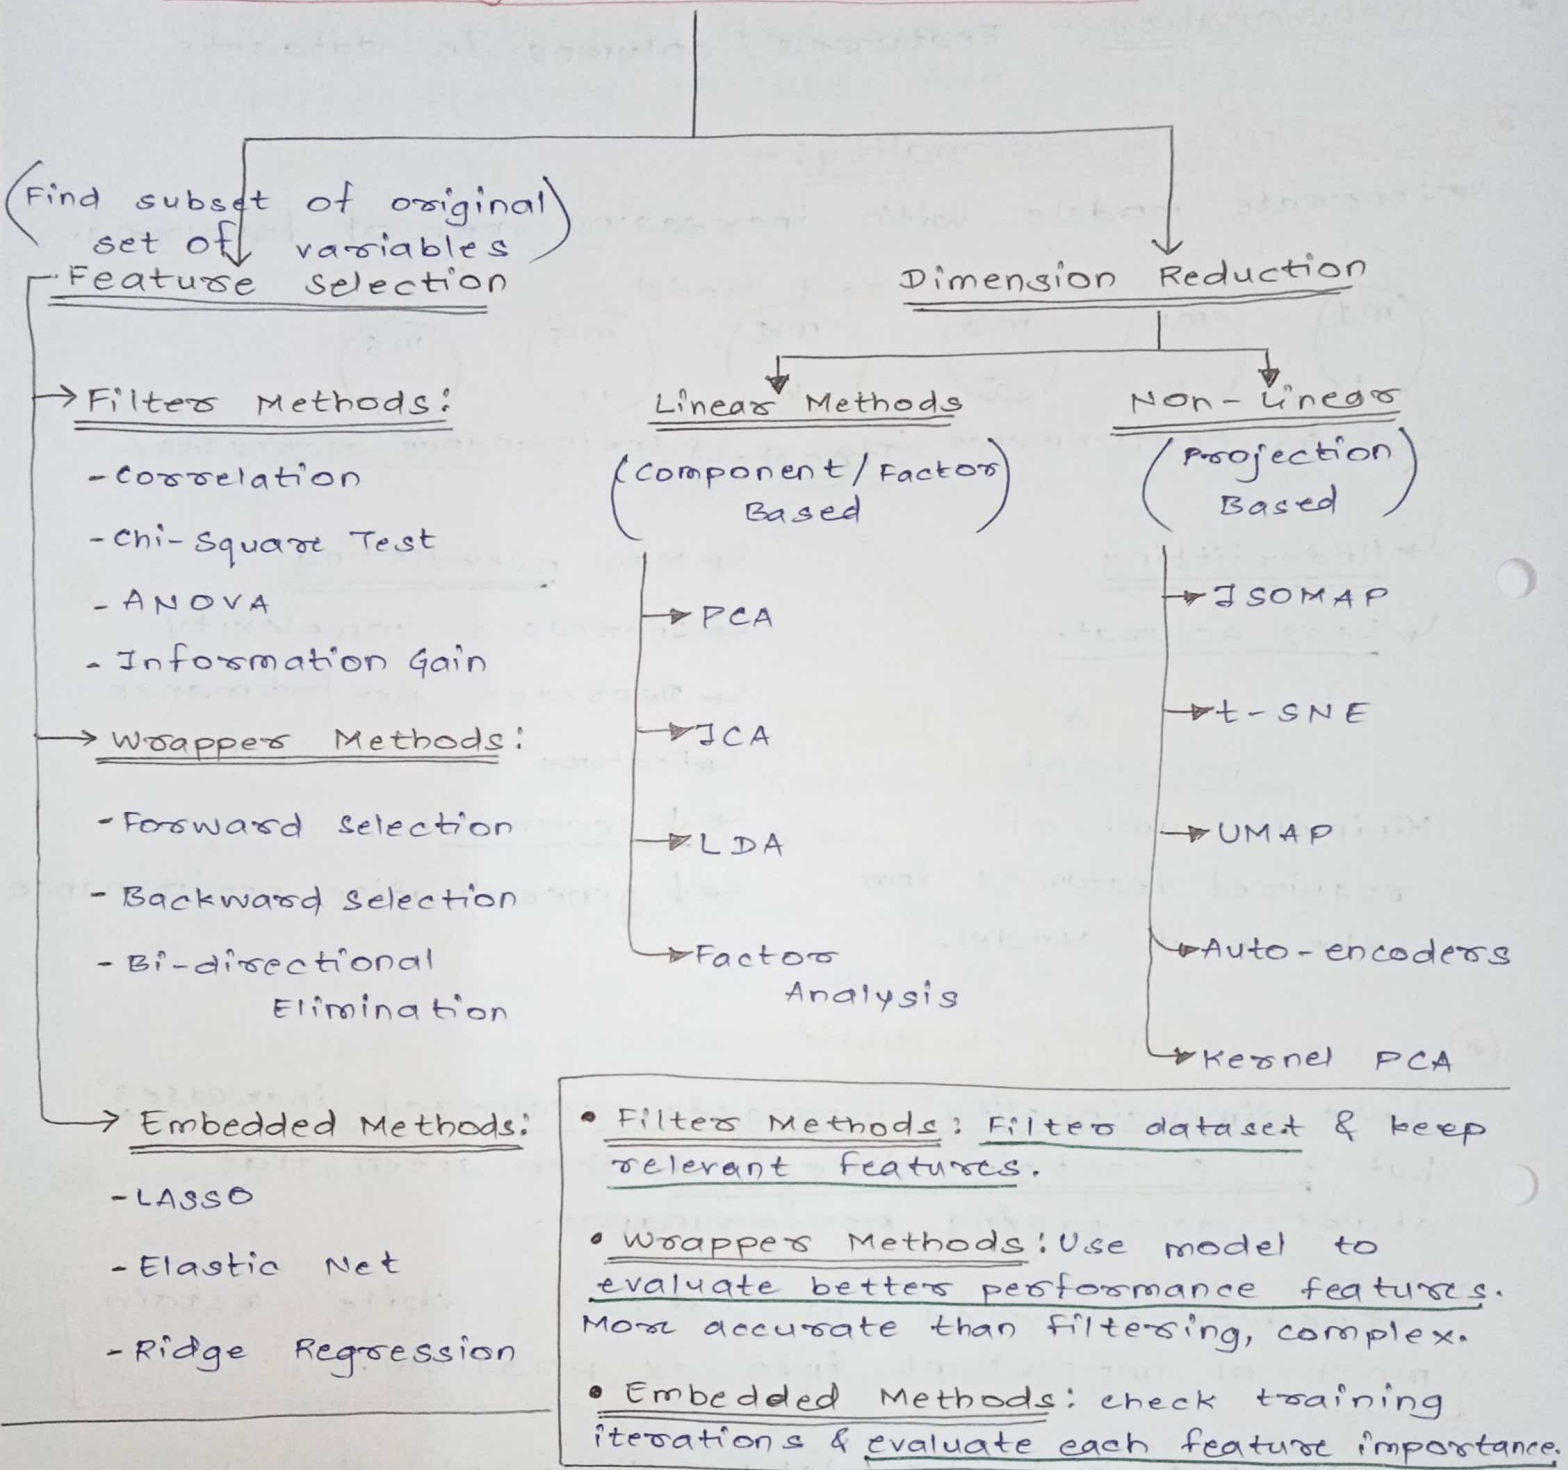 (Find subset of original
set of variables)
Feature Selection
→ Filter Methods:
- Correlation
- Chi-Square Test
- ANOVA
- Information Gain
→ Wrapper Methods:
- Forward Selection
- Backward Selection
- Bi-directional
Elimination
→ Embedded Methods:
- LASSO
- Elastic Net
- Ridge Regression
Dimension Reduction
Linear Methods
(Component/Factor
Based)
→ PCA
→ ICA
→ LDA
→ Factor
Analysis
Non-Linear
(Projection
Based)
→ ISOMAP
→ t-SNE
→ UMAP
→ Auto-encoders
→ Kernel PCA
• Filter Methods: Filter dataset & keep
relevant features.
• Wrapper Methods: Use model to
evaluate better performance features.
More accurate than filtering, complex.
• Embedded Methods: check training
iterations & evaluate each feature importance.